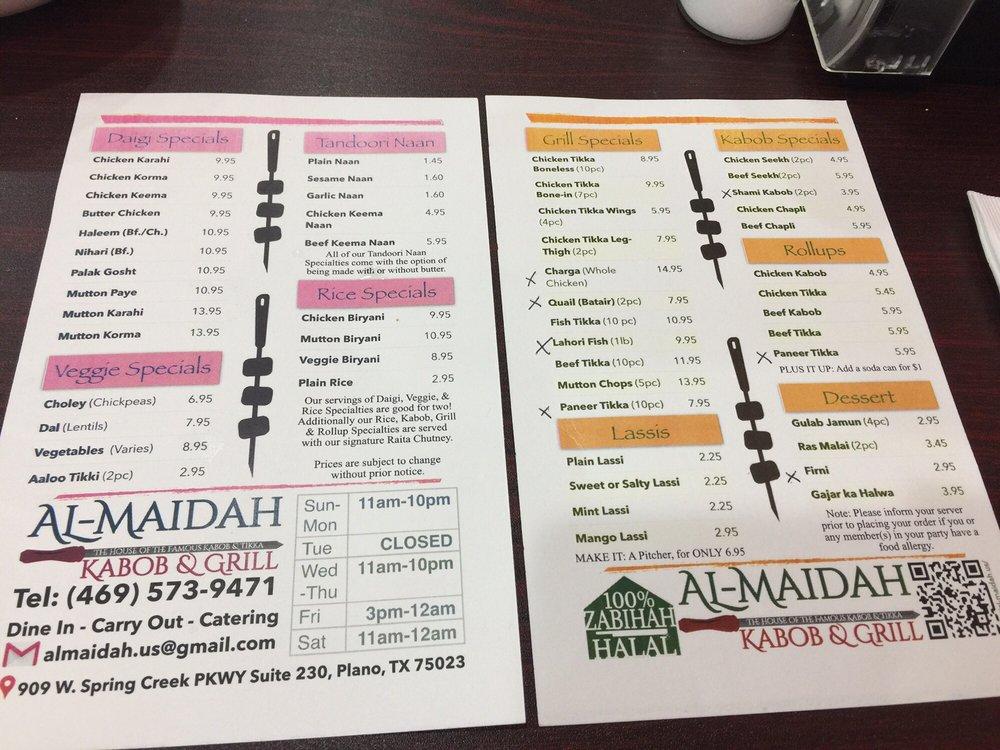 Daigi Specials
Chicken Karahi 9.95
Chicken Korma 9.95
Chicken Keema 9.95
Butter Chicken 9.95
Haleem (Bf./Ch.) 10.95
Nihari (Bf.) 10.95
Palak Gosht 10.95
Mutton Paye 10.95
Mutton Karahi 13.95
Mutton Korma 13.95
Veggie Specials
Choley (Chickpeas) 6.95
Dal (Lentils) 7.95
Vegetables (Varies) 8.95
Aaloo Tikki (2pc) 2.95
Tandoori Naan
Plain Naan 1.45
Sesame Naan 1.60
Garlic Naan 1.60
Chicken Keema 4.95
Naan
Beef Keema Naan 5.95
All of our Tandoori Naan
Specialties come with the option of
being made with or without butter.
Rice Specials
Chicken Biryani 9.95
Mutton Biryani 10.95
Veggie Biryani 8.95
Plain Rice 2.95
Our servings of Daigi, Veggie, &
Rice Specialties are good for two!
Additionally our Rice, Kabob, Grill
& Rollup Specialties are served
with our signature Raita Chutney.
Prices are subject to change
without prior notice.
AL-MAIDAH
THE HOUSE OF THE FAMOUS KABOB & TIKKA
KABOB & GRILL
Tel: (469) 573-9471
Dine In - Carry Out - Catering
almaidah.us@gmail.com
909 W. Spring Creek PKWY Suite 230, Plano, TX 75023
Sun-Mon 11am-10pm
Tue CLOSED
Wed-Thu 11am-10pm
Fri 3pm-12am
Sat 11am-12am
Grill Specials
Chicken Tikka 8.95
Boneless (10pc)
Chicken Tikka 9.95
Bone-in (7pc)
Chicken Tikka Wings 5.95
(4pc)
Chicken Tikka Leg- 7.95
Thigh (2pc)
X Charga (Whole 14.95
Chicken)
X Quail (Batair) (2pc) 7.95
Fish Tikka (10 pc) 10.95
X Lahori Fish (1lb) 9.95
Beef Tikka (10pc) 11.95
Mutton Chops (5pc) 13.95
X Paneer Tikka (10pc) 7.95
Lassis
Plain Lassi 2.25
Sweet or Salty Lassi 2.25
Mint Lassi 2.25
Mango Lassi 2.95
MAKE IT: A Pitcher, for ONLY 6.95
Kabob Specials
Chicken Seekh (2pc) 4.95
Beef Seekh(2pc) 5.95
X Shami Kabob (2pc) 3.95
Chicken Chapli 4.95
Beef Chapli 5.95
Rollups
Chicken Kabob 4.95
Chicken Tikka 5.45
Beef Kabob 5.95
Beef Tikka 5.95
X Paneer Tikka 5.95
PLUS IT UP: Add a soda can for $1
Dessert
Gulab Jamun (4pc) 2.95
Ras Malai (2pc) 3.45
X Firni 2.95
Gajar ka Halwa 3.95
Note: Please inform your server
prior to placing your order if you or
any member(s) in your party have a
food allergy.
100%
ZABIHAH
HALAL
AL-MAIDAH
THE HOUSE OF THE FAMOUS KABOB & TIKKA
KABOB & GRILL